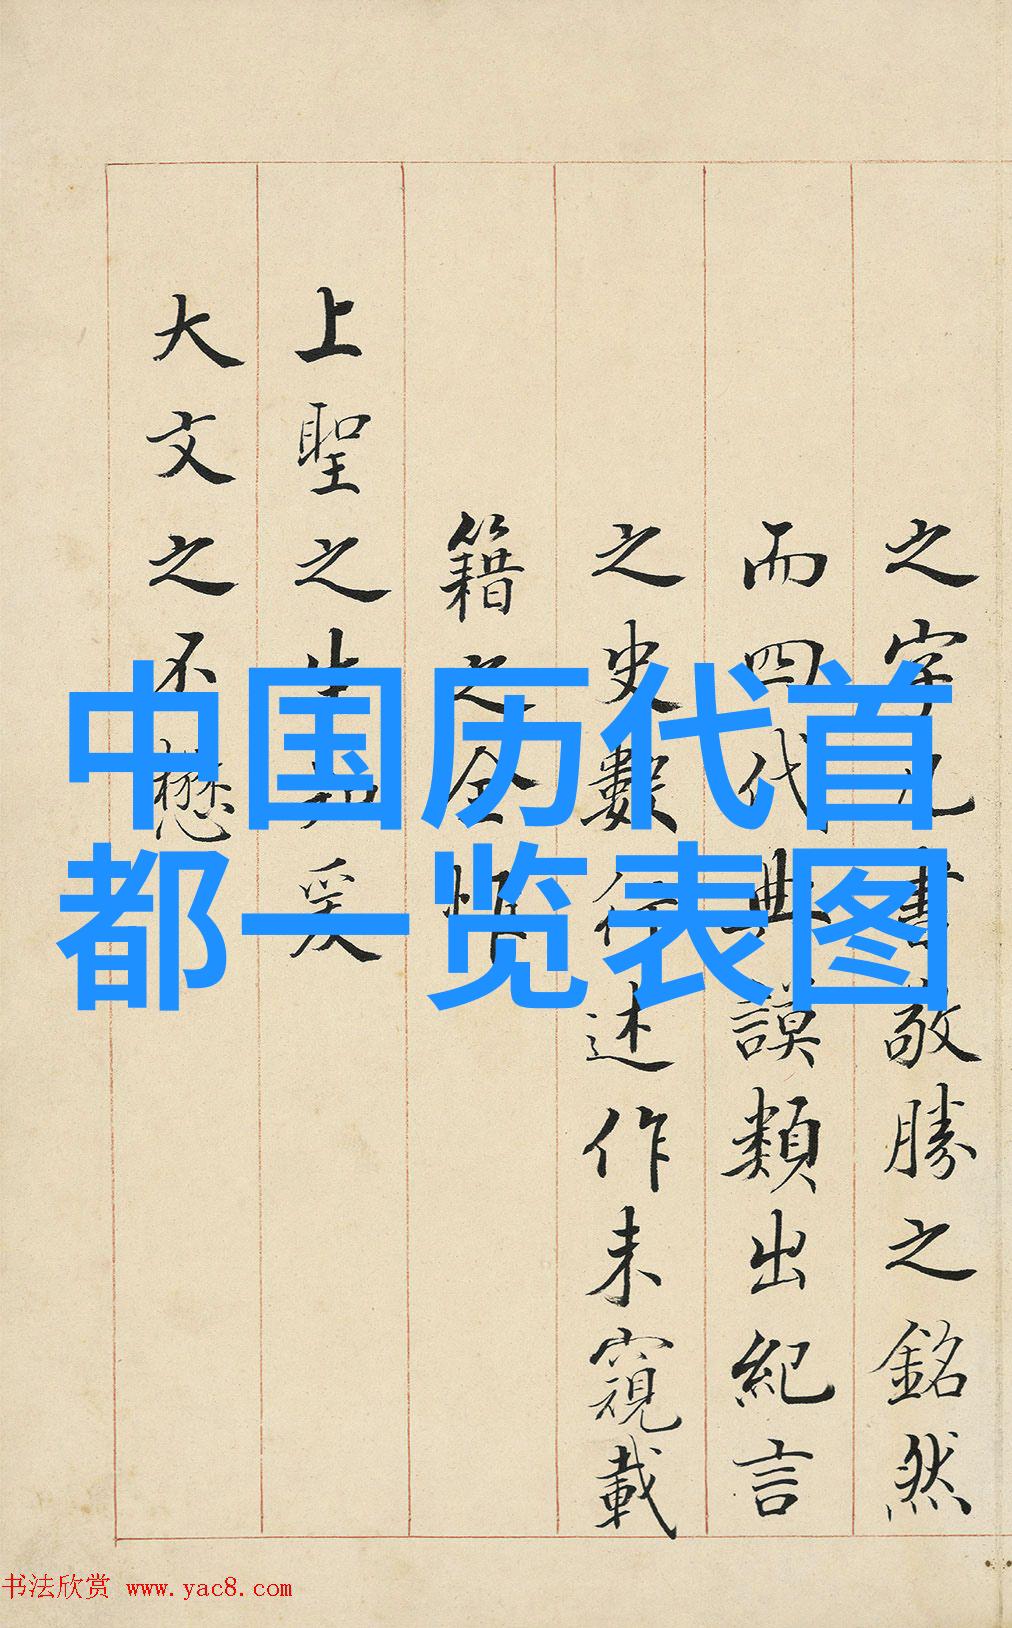 中国历代首
都一览表图
之字書敬勝之銘然
而四代典謨類出紀言
之史數行述作未窺載
籍之全
上聖之矣
大文之不懋
书法欣赏 www.yac8.com